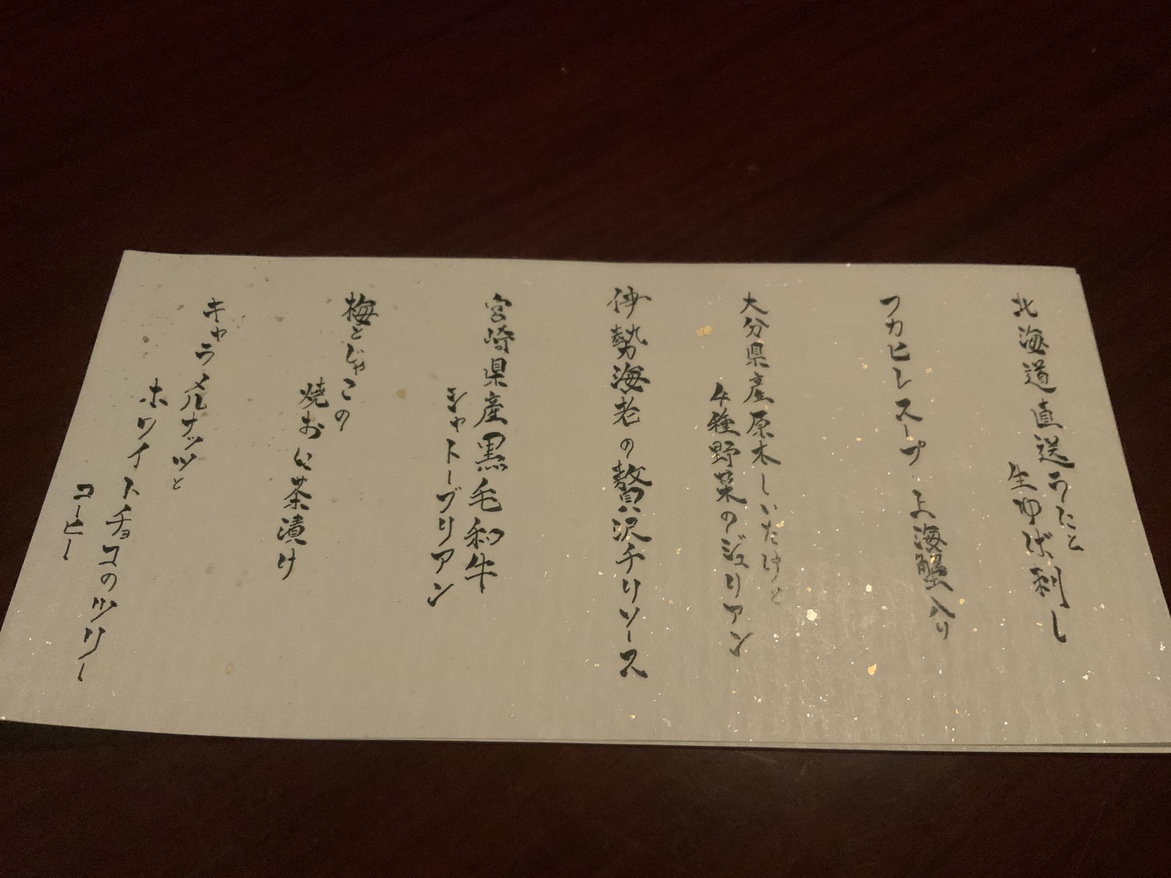 北海道直送うにと
生ゆば刺し
フカヒレスープ 上海蟹入り
大分県産原木しいたけと
4種野菜のジュリアン
伊勢海老の贅沢チリソース
宮崎県産黒毛和牛
シャトーブリアン
梅とじゃこの
焼おに茶漬け
キャラメルナッツと
ホワイトチョコのツリー
コーヒー